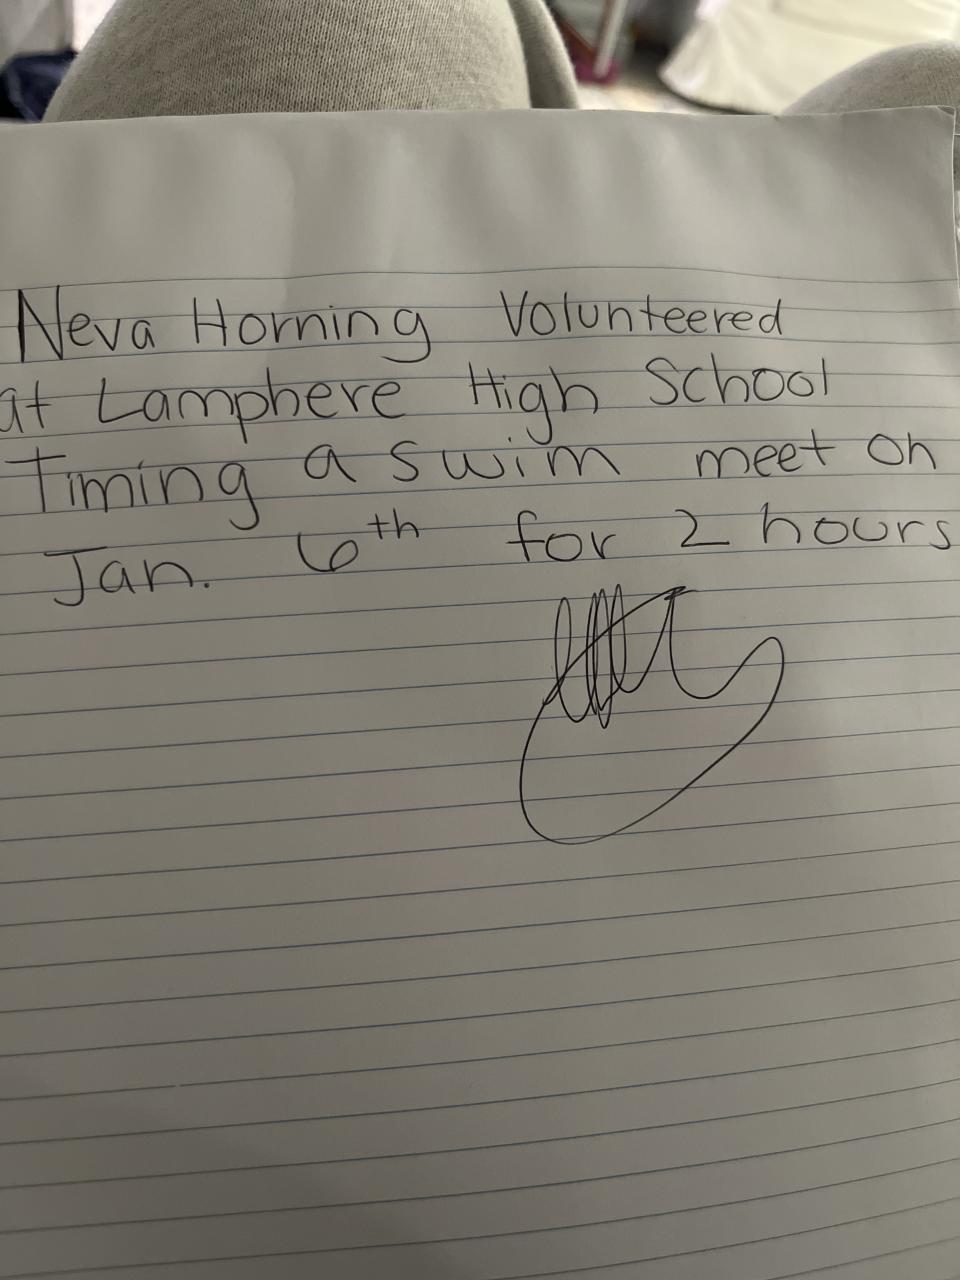 Neva Horning Volunteered
at Lamphere High School
Timing a swim meet on
Jan. 6th for 2 hours